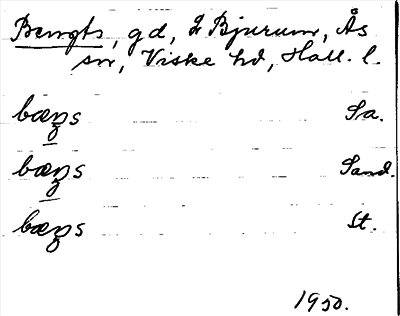 Bengts, gd, L Bjurum, Ås
sn, Viske hd, Hall. l.
bæŋs Sa.
bæŋs Sand.
bæŋs St.
1950.